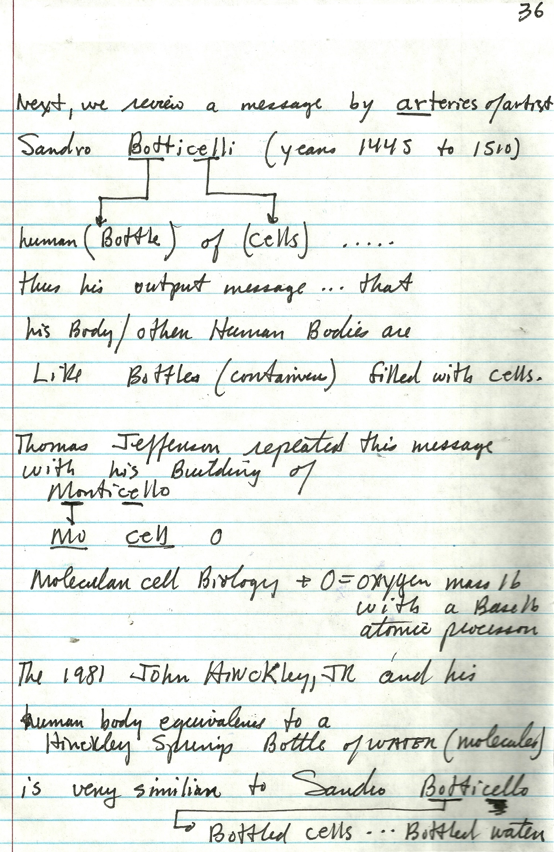 36
Next, we review a message by arteries of artist
Sandro Botticelli (years 1445 to 1510)
human (Bottle) of (cells) .....
thus his output message ... that
his Body/other Human Bodies are
Like Bottles (containers) filled with cells.
Thomas Jefferson repeated this message
with his Building of
Monticello
Mo cell O
Molecular cell Biology + O = oxygen mass 16
with a Base 16
atomic processor
The 1981 John Hinckley, JR and his
human body equivalence to a
Hinckley Springs Bottle of WATER (molecules)
is very similiar to Sandro Botticello
Bottled cells ... Bottled water